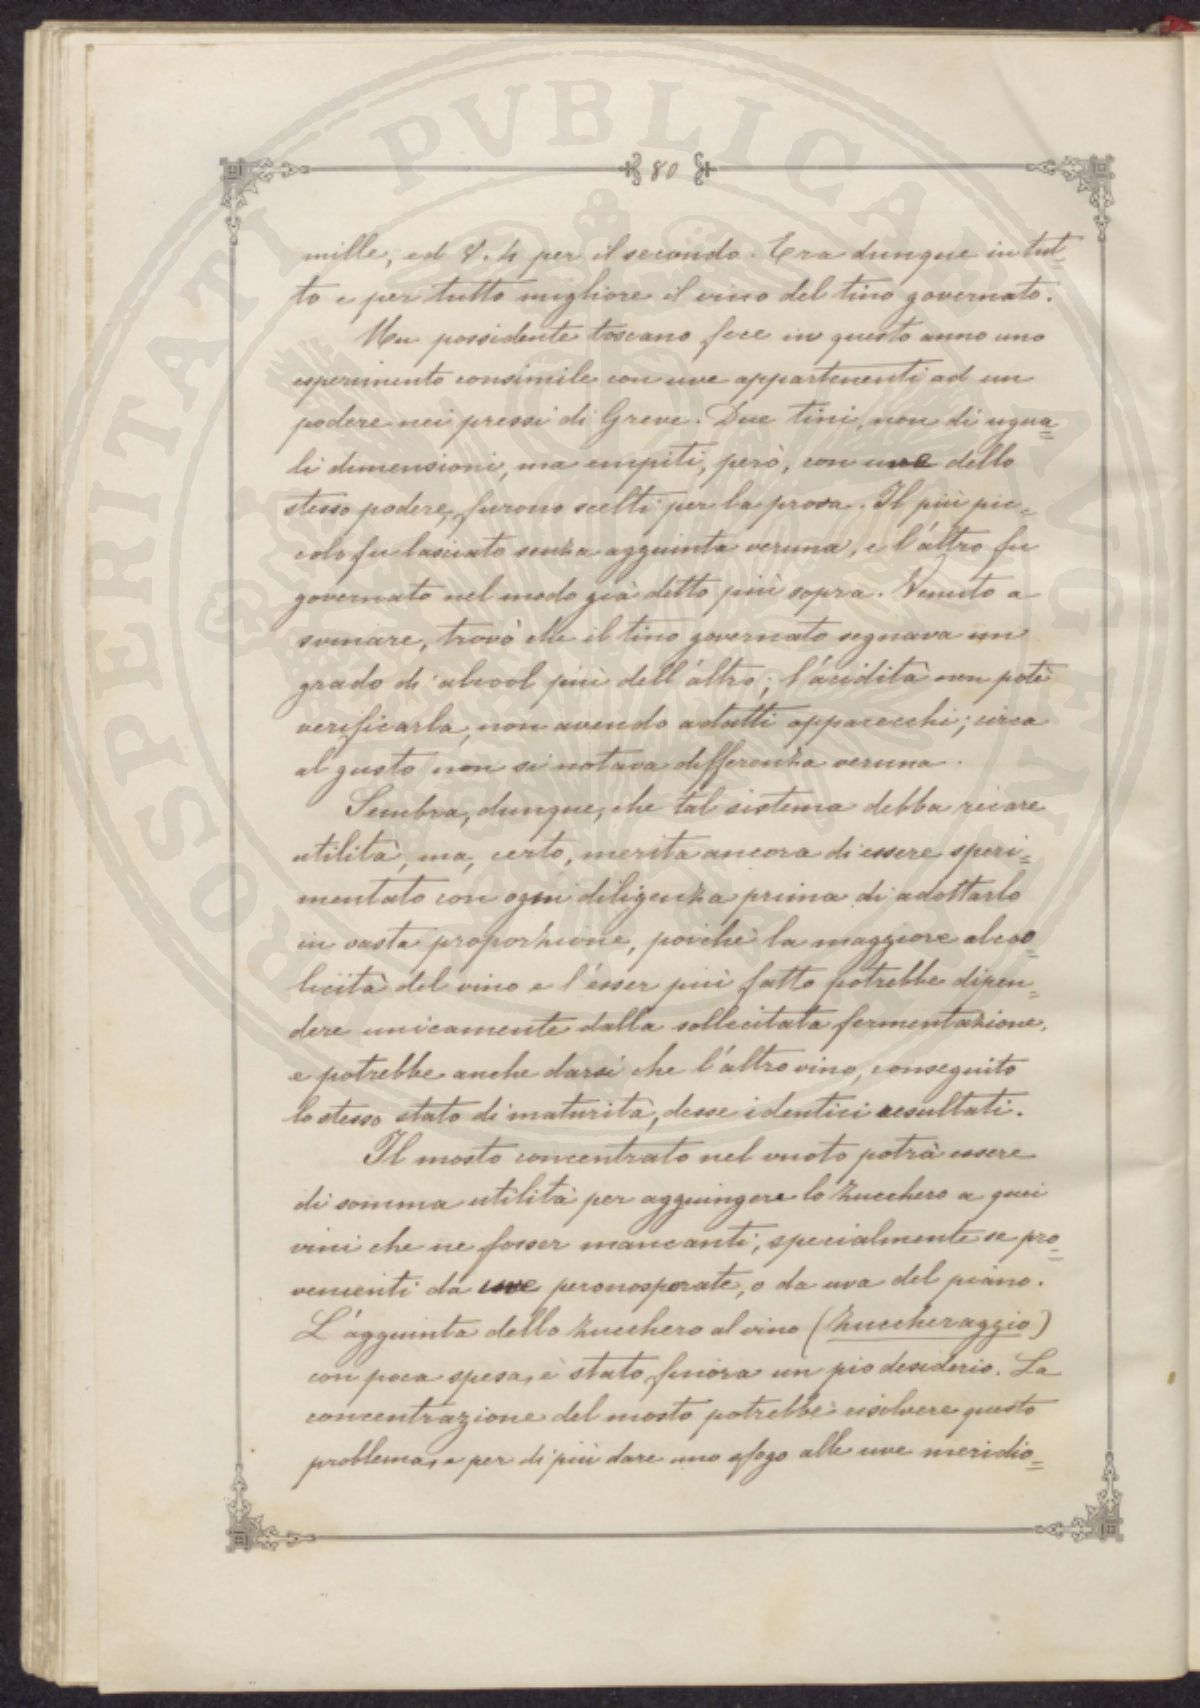 80
mille, ed 8.4 per il secondo. Era dunque in tut=
to e per tutto migliore il vino del tino governato.
Un possidente toscano fece in questo anno uno
esperimento consimile con uve appartenenti ad un
podere nei pressi di Greve. Due tini, non di ugua=
li dimensioni, ma empiti, però, con uve dello
stesso podere, furono scelti per la prova. Il più pic=
colo fu lasciato senza aggiunta veruna, e l'altro fu
governato nel modo già detto più sopra. Venuto a
svinare, trovò che il tino governato segnava un
grado di alcool più dell'altro; l'acidità non potè
verificarla, non avendo adatti apparecchi; circa
al gusto non si notava differenza veruna.
Sembra, dunque, che tal sistema debba recare
utilità, ma, certo, merita ancora di essere speri=
mentato con ogni diligenza prima di adottarlo
in vasta proporzione, poichè la maggiore alcoo=
licità del vino e l'esser più fatto potrebbe dipen=
dere unicamente dalla sollecitata fermentazione,
e potrebbe anche darsi che l'altro vino, conseguito
lo stesso stato di maturità, desse identici resultati.
Il mosto concentrato nel vuoto potrà essere
di somma utilità per aggiungere lo zucchero a quei
vini che ne fosser mancanti, specialmente se pro=
venienti da uve peronosporate, o da uva del piano.
L'aggiunta dello zucchero al vino (zuccheraggio)
con poca spesa, è stato finora un pio desiderio. La
concentrazione del mosto potrebbe risolvere questo
problema, e per di più dare uno sfogo alle uve meridio=
PUBLICAE
PROSPERITATI
AUGENDAE